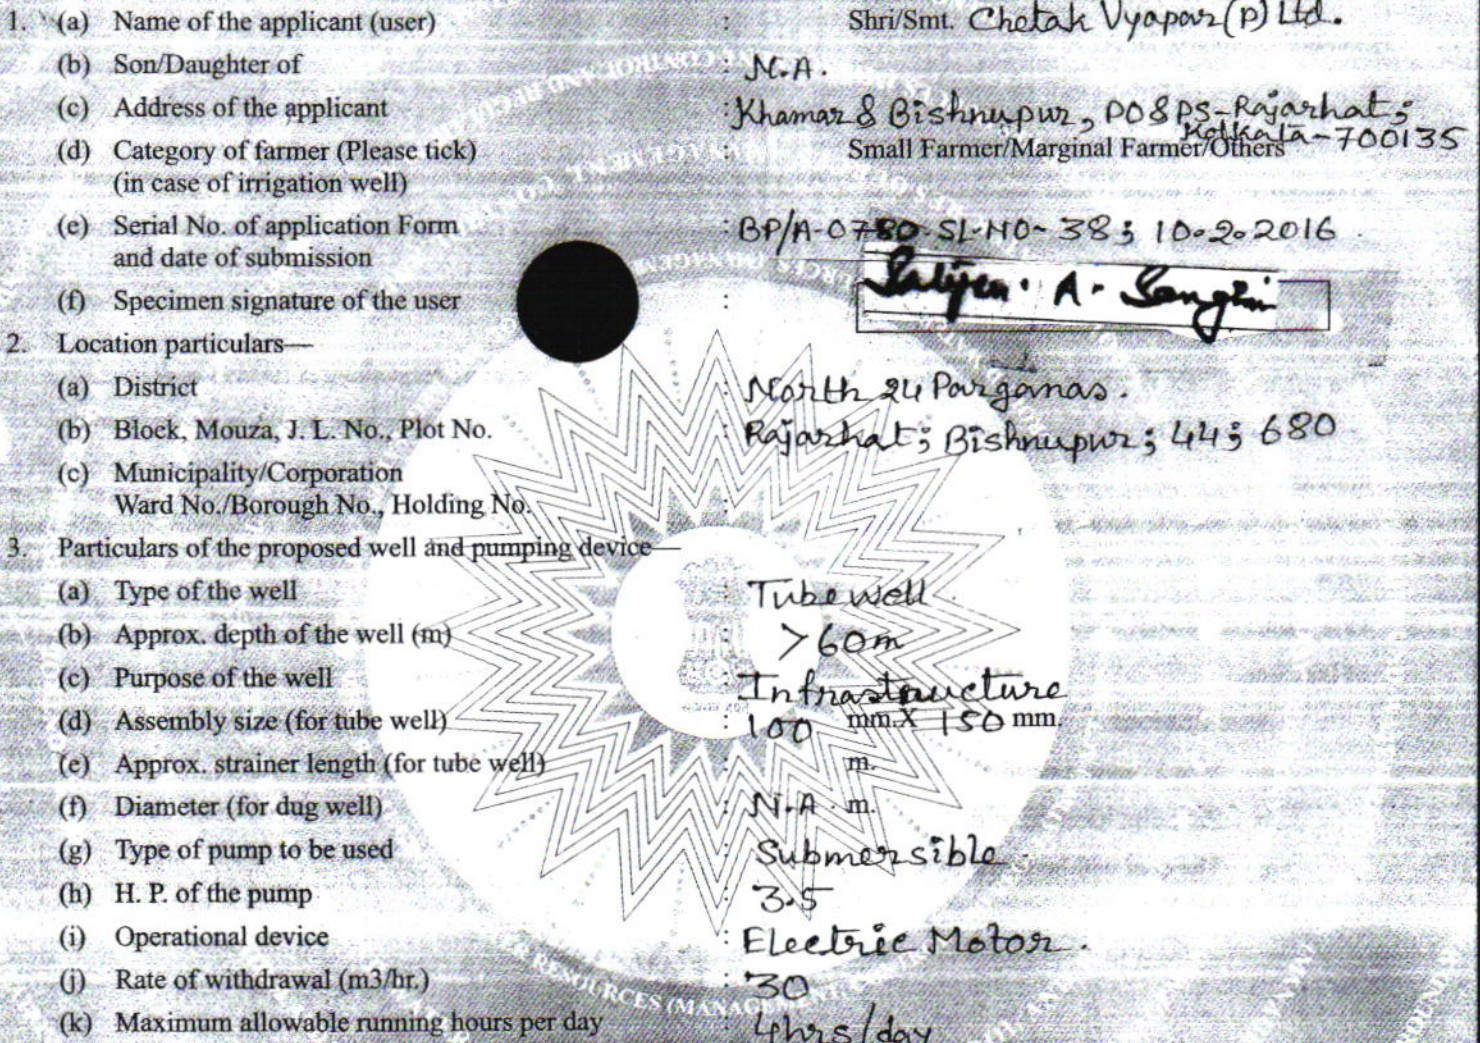 1. (a) Name of the applicant (user) : Shri/Smt. Chetak Vyapar (P) Ltd.
(b) Son/Daughter of : N.A.
(c) Address of the applicant : Khamar & Bishnupur, PO & PS-Rajarhat;
Kolkata-700135
(d) Category of farmer (Please tick) : Small Farmer/Marginal Farmer/Others
(in case of irrigation well)
(e) Serial No. of application Form : BP/A-0780 SL-NO- 38; 10.2.2016
and date of submission
(f) Specimen signature of the user :
2. Location particulars—
(a) District : North 24 Parganas.
(b) Block, Mouza, J. L. No., Plot No. : Rajarhat; Bishnupur; 44; 680
(c) Municipality/Corporation
Ward No./Borough No., Holding No. :
3. Particulars of the proposed well and pumping device—
(a) Type of the well : Tube well
(b) Approx. depth of the well (m) : >60m
(c) Purpose of the well : Infrastructure
(d) Assembly size (for tube well) : 100 mm.X 150 mm.
(e) Approx. strainer length (for tube well) : m.
(f) Diameter (for dug well) : N.A. m.
(g) Type of pump to be used : Submersible
(h) H. P. of the pump : 3.5
(i) Operational device : Electric Motor.
(j) Rate of withdrawal (m3/hr.) : 30
RESOURCES (MANAGEMENT
(k) Maximum allowable running hours per day : 4hrs/day